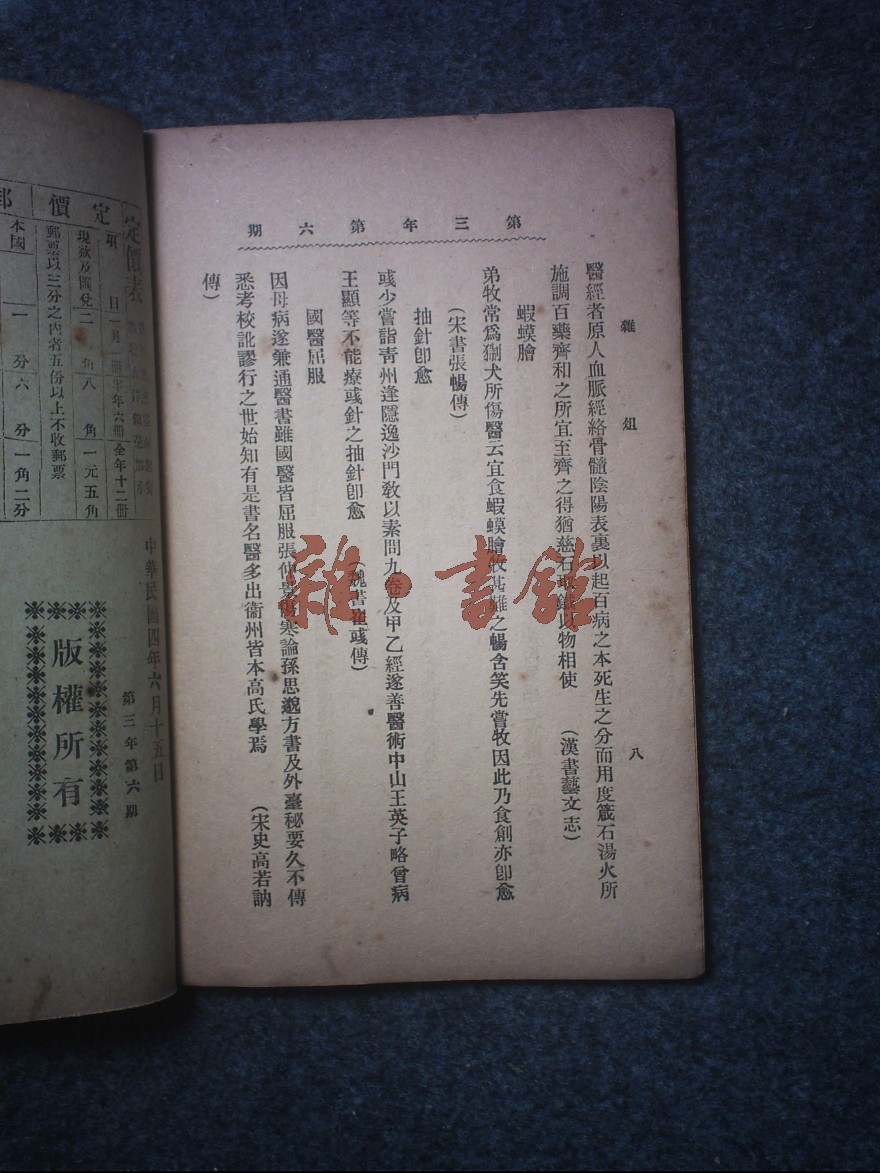 第三年第六期
雜俎
八
醫經者原人血脈經絡骨髓陰陽表裏以起百病之本死生之分而用度箴石湯火所
施調百藥齊和之所宜至齊之得猶慈石取鐵以物相使 (漢書藝文志)
蝦蟆膾
弟牧常爲猘犬所傷醫云宜食蝦蟆膾牧甚難之暢含笑先嘗牧因此乃食創亦卽愈
(宋書張暢傳)
抽針卽愈
彧少嘗詣靑州逢隱逸沙門敎以素問九卷及甲乙經遂善醫術中山王英子略曾病
王顯等不能療彧針之抽針卽愈 (魏書崔彧傳)
國醫屈服
因母病遂兼通醫書雖國醫皆屈服張仲景傷寒論孫思邈方書及外臺秘要久不傳
悉考校訛謬行之世始知有是書名醫多出衞州皆本高氏學焉 (宋史高若訥
傳)
雜·書館
定價表
郵
定價
項目
一月一冊
半年六冊
全年十二冊
現欵及匯兌
二角八
角
一元五角
郵票以三分之內者五份以上不收郵票
本國
一分
六分
一角二分
中華民國四年六月十五日
第三年第六期
版權所有